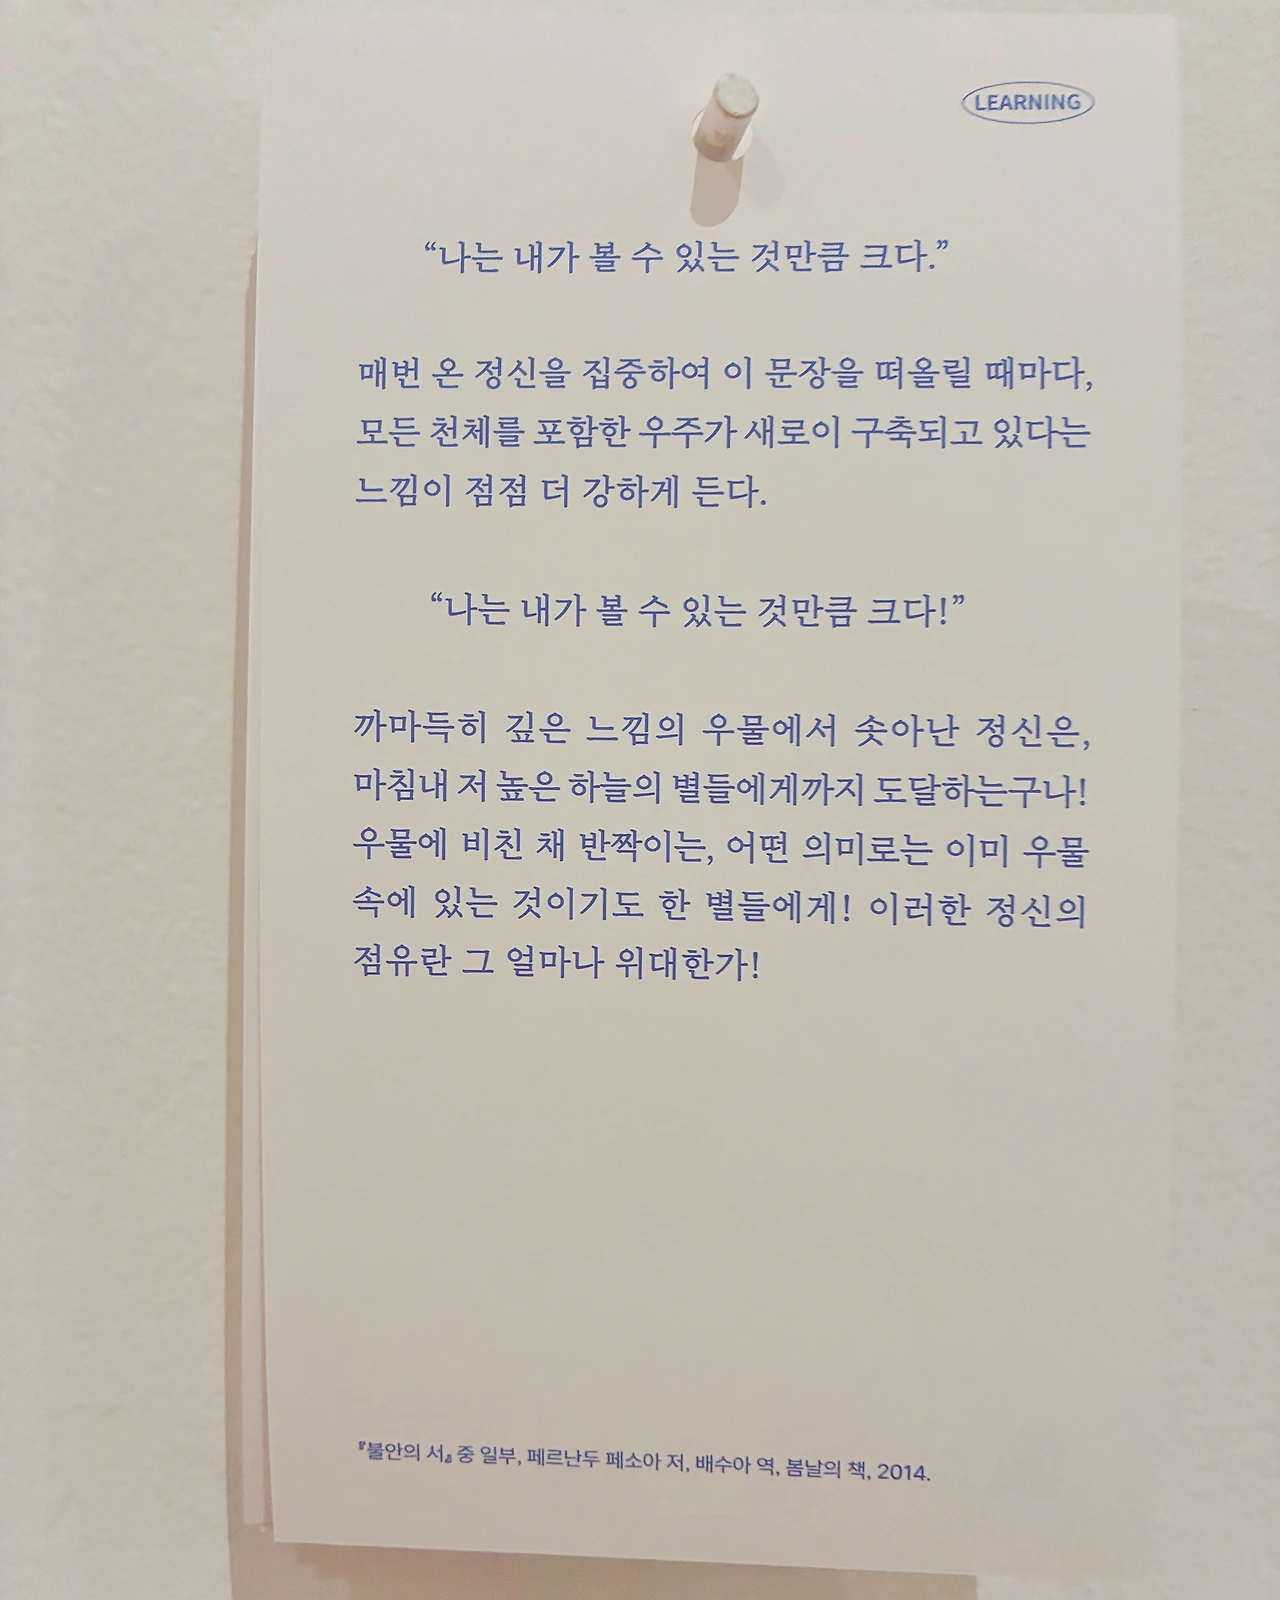 LEARNING
“나는 내가 볼 수 있는 것만큼 크다.”
매번 온 정신을 집중하여 이 문장을 떠올릴 때마다,
모든 천체를 포함한 우주가 새로이 구축되고 있다는
느낌이 점점 더 강하게 든다.
“나는 내가 볼 수 있는 것만큼 크다!”
까마득히 깊은 느낌의 우물에서 솟아난 정신은,
마침내 저 높은 하늘의 별들에게까지 도달하는구나!
우물에 비친 채 반짝이는, 어떤 의미로는 이미 우물
속에 있는 것이기도 한 별들에게! 이러한 정신의
점유란 그 얼마나 위대한가!
『불안의 서』 중 일부, 페르난두 페소아 저, 배수아 역, 봄날의 책, 2014.